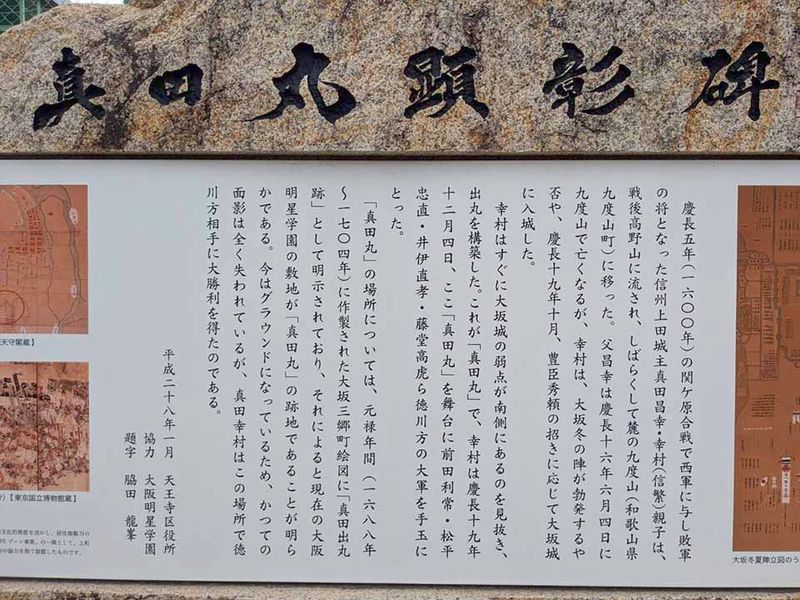 真田丸顕彰碑
慶長五年(一六〇〇年)の関ケ原合戦で西軍に与し敗軍
の将となった信州上田城主真田昌幸・幸村(信繁)親子は、
戦後高野山に流され、しばらくして麓の九度山(和歌山県
九度山町)に移った。父昌幸は慶長十六年六月四日に
九度山で亡くなるが、幸村は、大坂冬の陣が勃発するや
否や、慶長十九年十月、豊臣秀頼の招きに応じて大坂城
に入城した。
幸村はすぐに大坂城の弱点が南側にあるのを見抜き、
出丸を構築した。これが「真田丸」で、幸村は慶長十九年
十二月四日、ここ「真田丸」を舞台に前田利常・松平
忠直・井伊直孝・藤堂高虎ら徳川方の大軍を手玉に
とった。
「真田丸」の場所については、元禄年間(一六八八年
〜一七〇四年)に作製された大坂三郷町絵図に「真田出丸
跡」として明示されており、それによると現在の大阪
明星学園の敷地が「真田丸」の跡地であることが明ら
かである。今はグラウンドになっているため、かつての
面影は全く失われているが、真田幸村はこの場所で徳
川方相手に大勝利を得たのである。
平成二十八年一月 天王寺区役所
協力 大阪明星学園
題字 脇田 龍峯
天守閣蔵】
【東京国立博物館蔵】
大坂冬夏陣立図のう